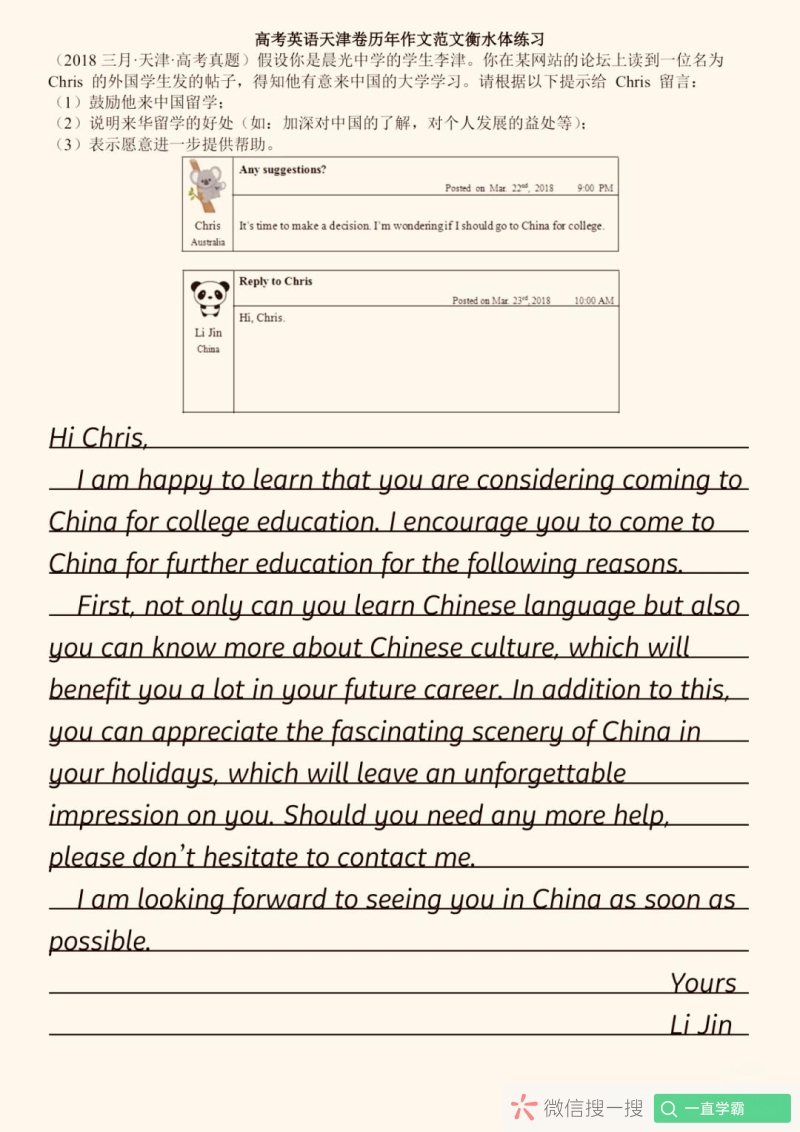 高考英语天津卷历年作文范文衡水体练习
（2018 三月·天津·高考真题）假设你是晨光中学的学生李津。你在某网站的论坛上读到一位名为
Chris 的外国学生发的帖子，得知他有意来中国的大学学习。请根据以下提示给 Chris 留言：
（1）鼓励他来中国留学；
（2）说明来华留学的好处（如：加深对中国的了解，对个人发展的益处等）；
（3）表示愿意进一步提供帮助。
Any suggestions?
Posted on Mar. 22nd, 2018 9:00 PM
Chris
Australia
It's time to make a decision. I'm wondering if I should go to China for college.
Reply to Chris
Posted on Mar. 23rd, 2018 10:00 AM
Li Jin
China
Hi, Chris.
Hi Chris,
I am happy to learn that you are considering coming to
China for college education. I encourage you to come to
China for further education for the following reasons.
First, not only can you learn Chinese language but also
you can know more about Chinese culture, which will
benefit you a lot in your future career. In addition to this,
you can appreciate the fascinating scenery of China in
your holidays, which will leave an unforgettable
impression on you. Should you need any more help,
please don't hesitate to contact me.
I am looking forward to seeing you in China as soon as
possible.
Yours
Li Jin
微信搜一搜
一直学霸